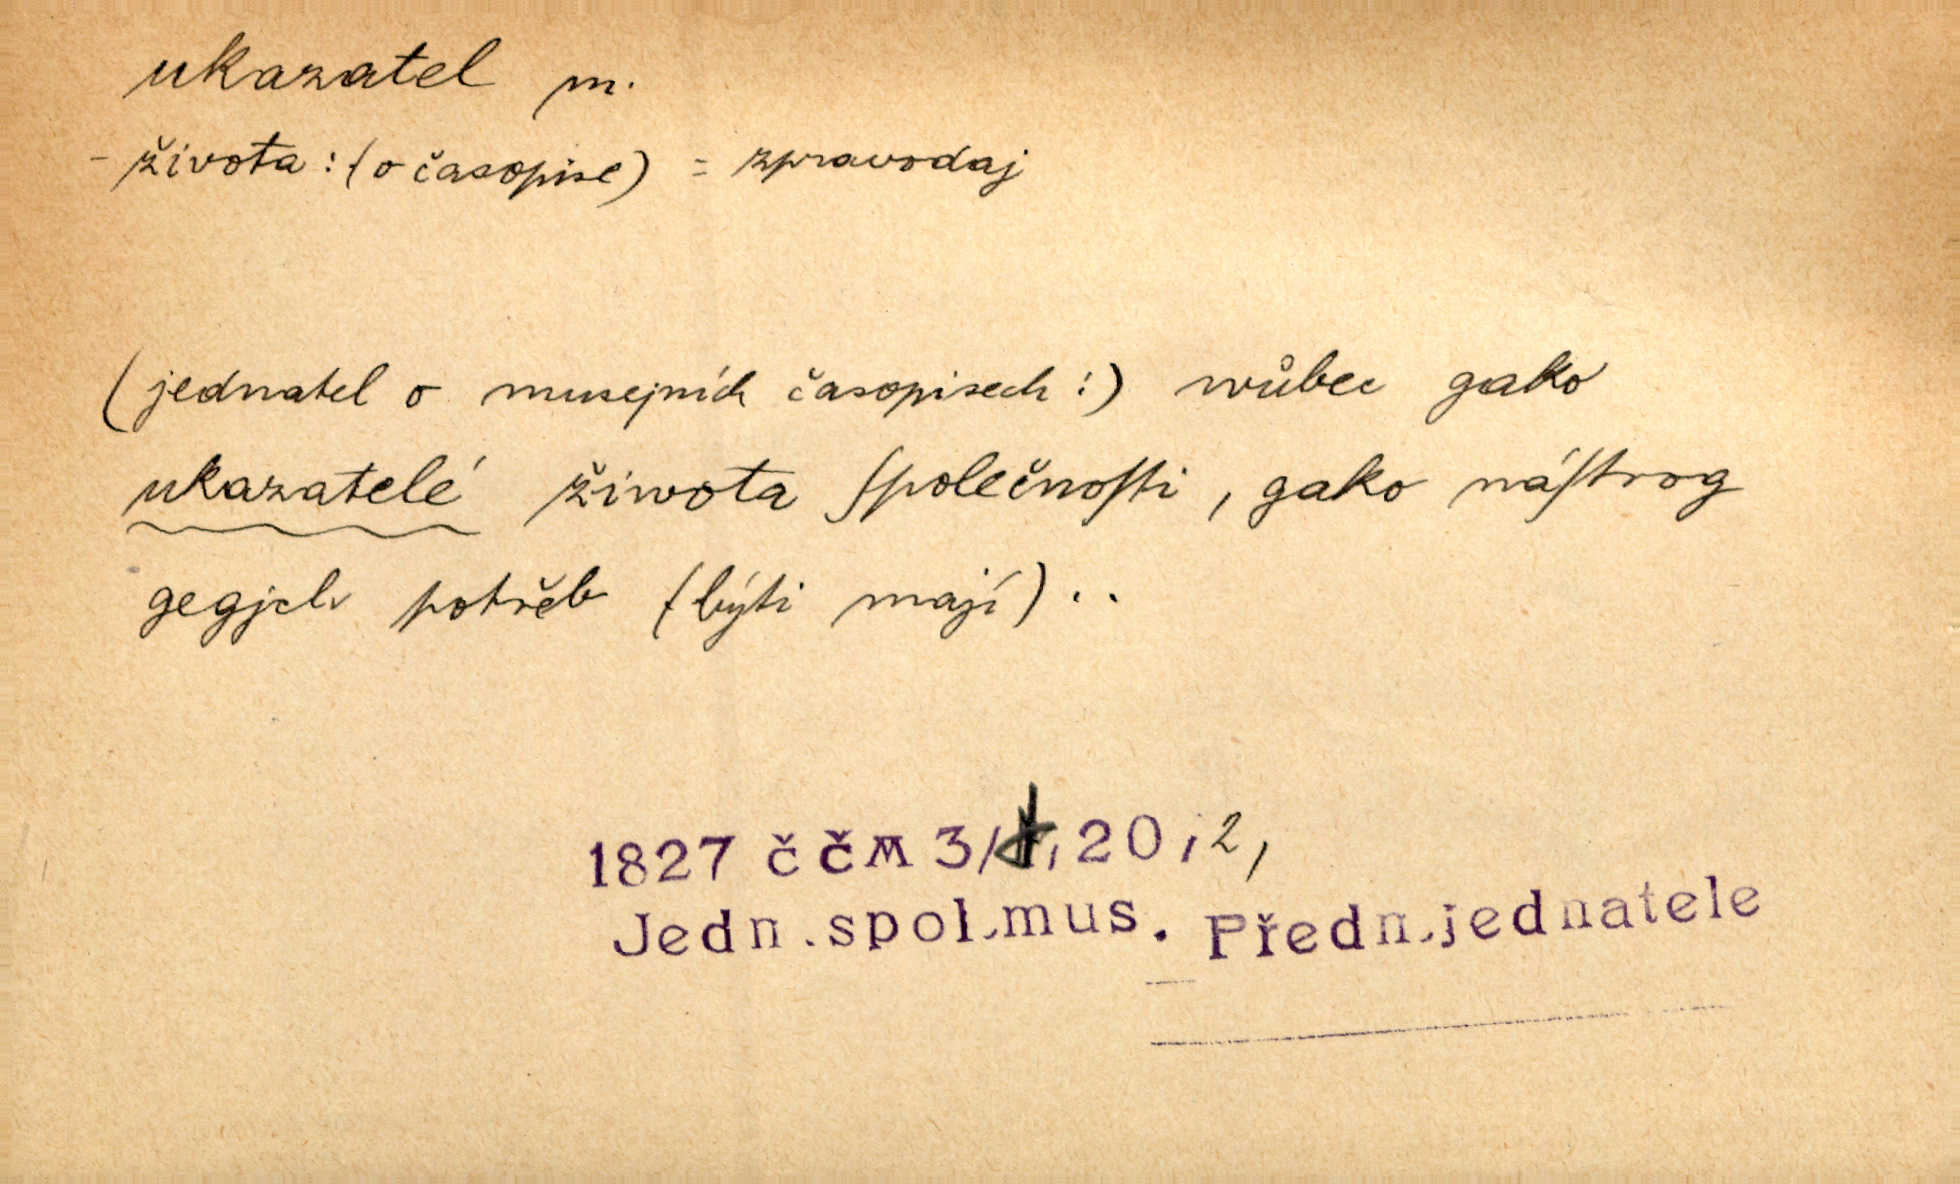 ukazatel m.
- života : (o časopise) = zpravodaj
(jednatel o musejních časopisech :) wůbec gako
ukazatelé žiwota ſpolečnoſti , gako náſtrog
gegjch potřeb (býti mají) . .
1827 ČČM 3/ , 20 , 2 ,
Jedn. spol. mus. Předn. jednatele